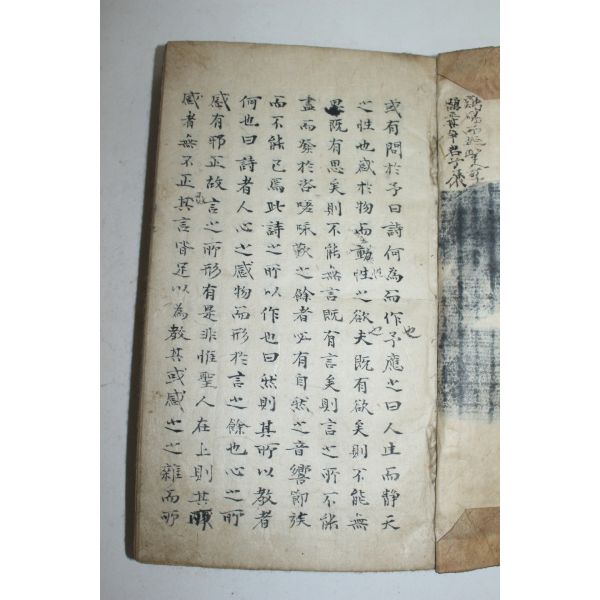 或有問於予曰詩何為而作也予應之曰人生而静天
之性也感於物而動性之欲也夫既有欲矣則不能無
思既有思矣則不能無言既有言矣則言之所不能
盡而發於咨嗟咏歎之餘者必有自然之音響節族
而不能已焉此詩之所以作也曰然則其所以教者
何也曰詩者人心之感物而形於言之餘也心之所
感有邪正故言之所形有是非惟聖人在上則其所
感者無不正其言皆足以為教其或感之之雜而所